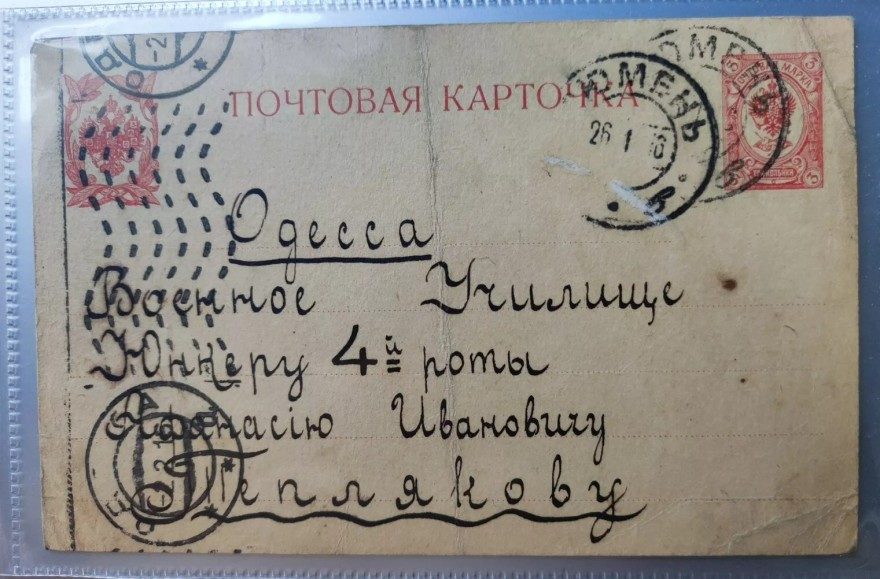 ПОЧТОВАЯ КАРТОЧКА
ЮМЕНЬ
26 1 16
Одесса
Военное Училище
Юнкеру 4й роты
Афанасію Ивановичу
Теплякову